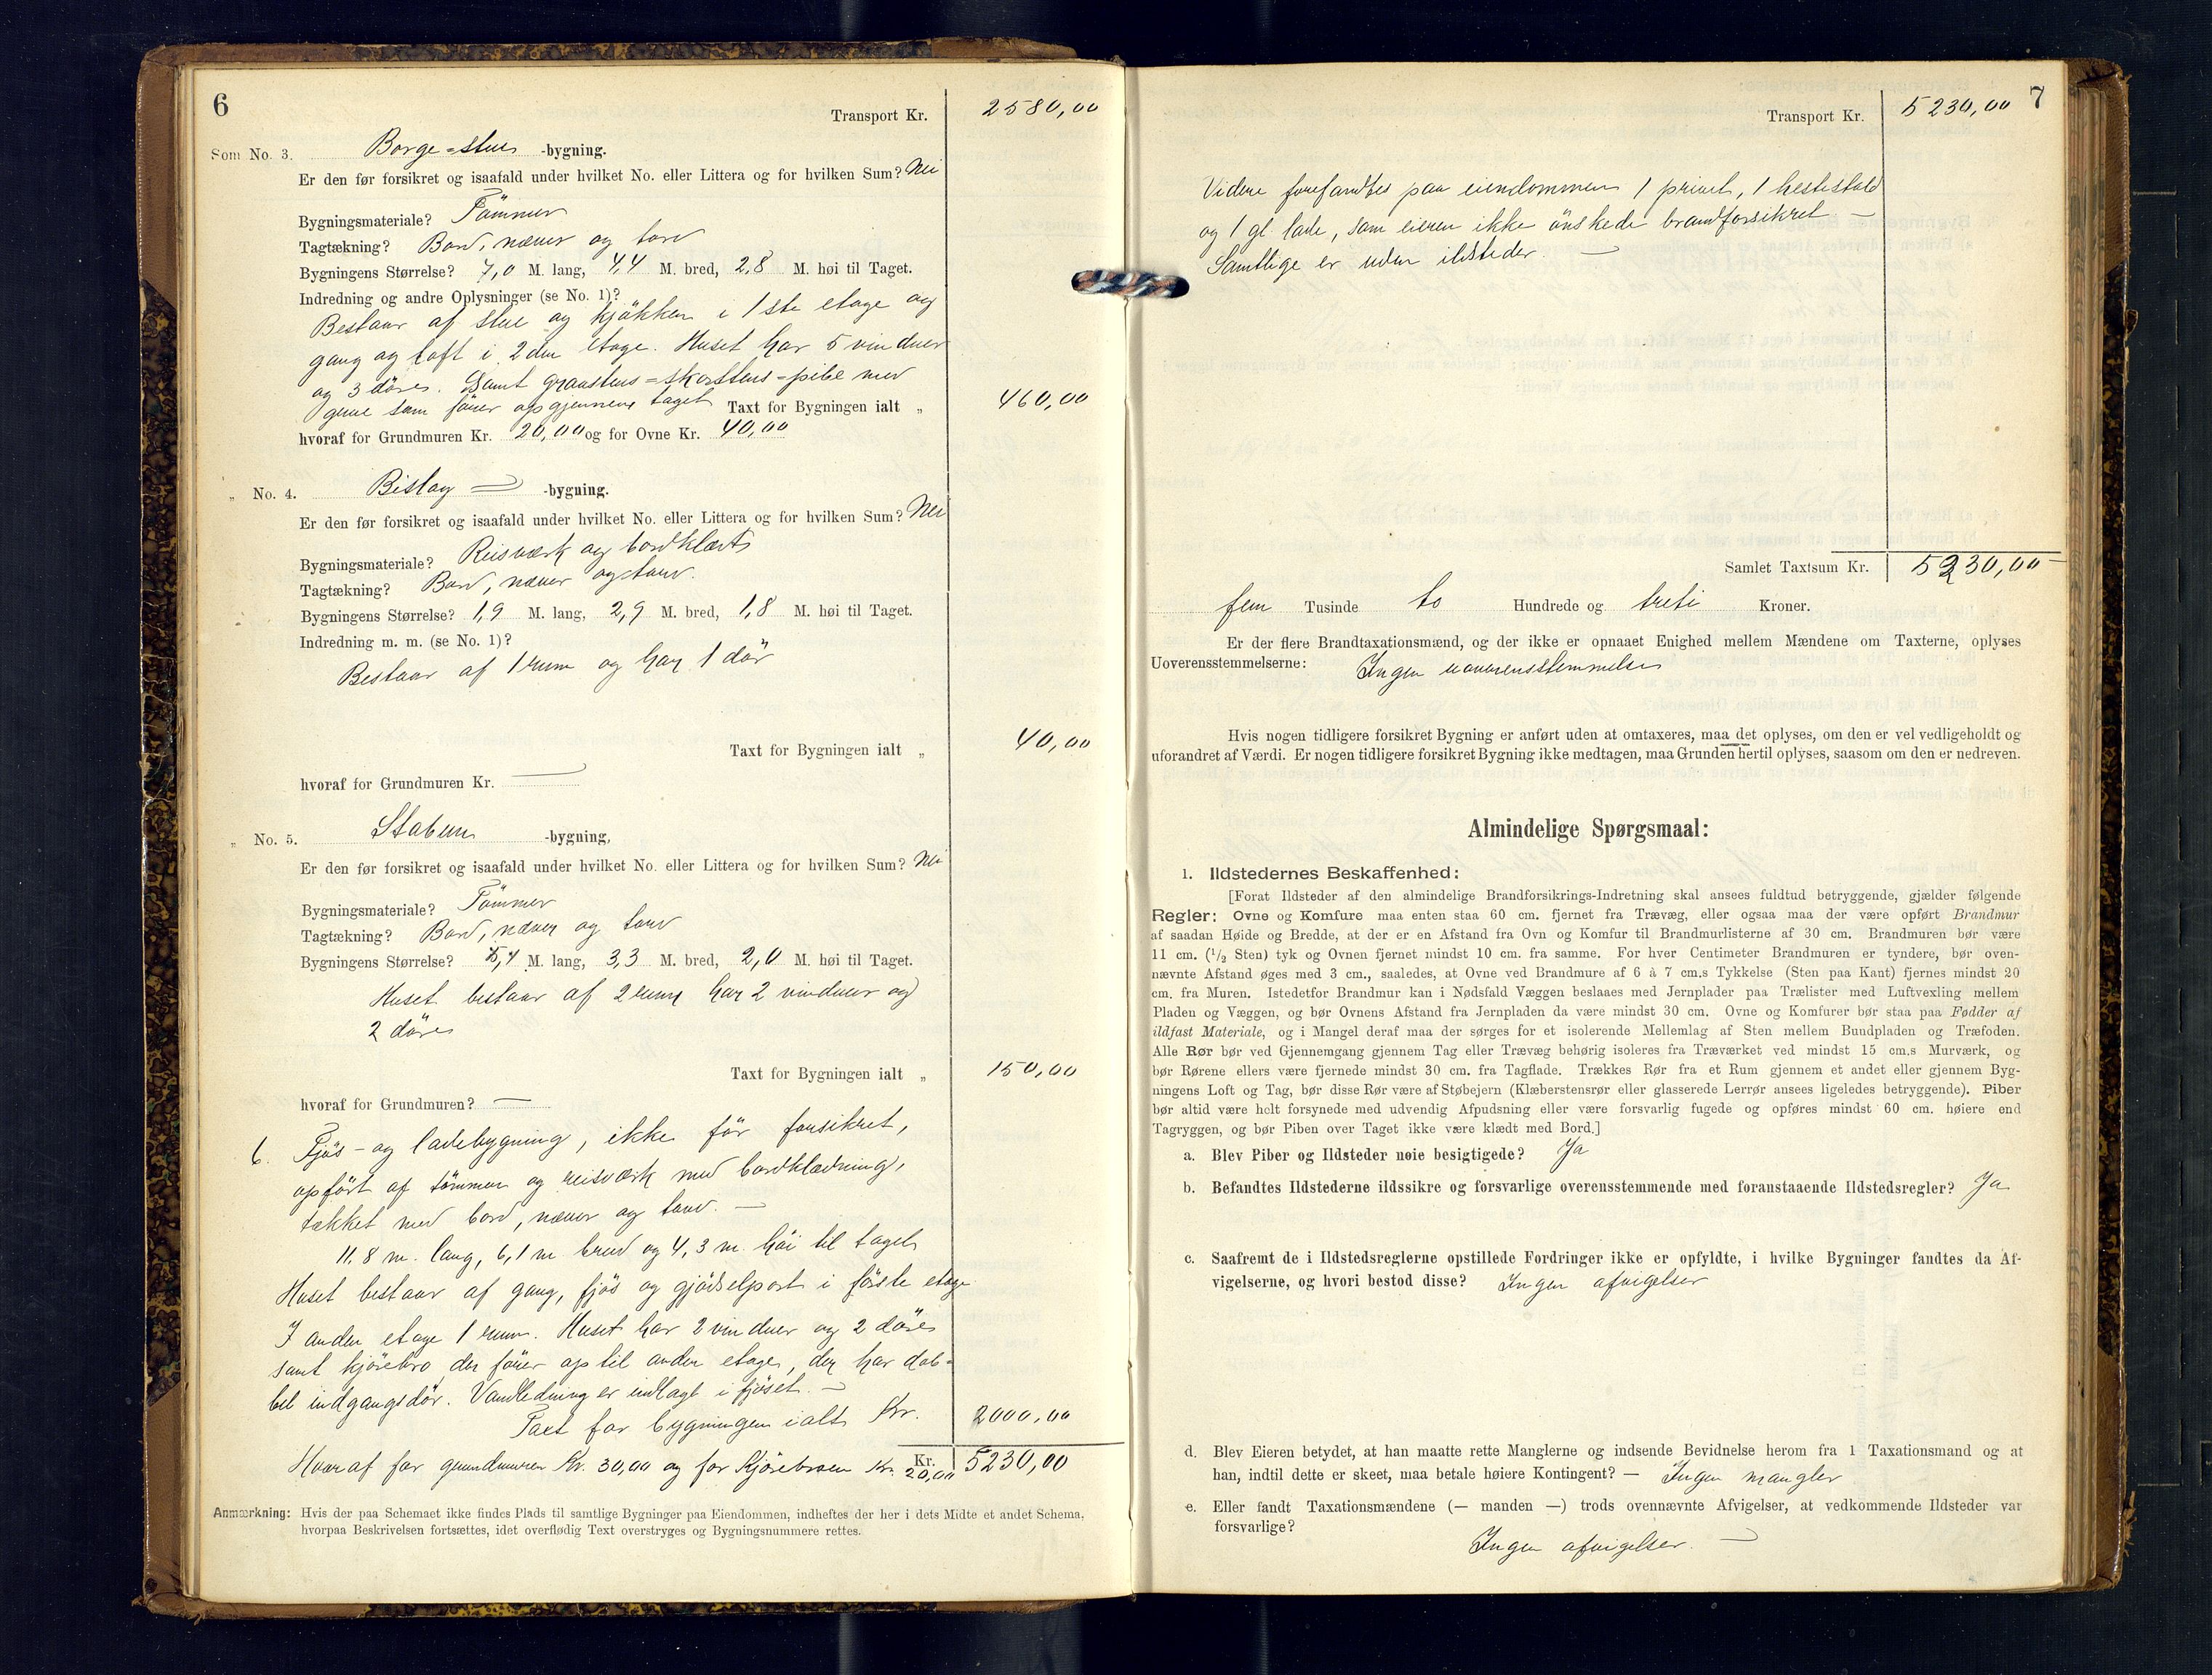 6
Transport Kr. 2580,00
Som No. 3. Borge=stue -bygning.
Er den før forsikret og isaafald under hvilket No. eller Littera og for hvilken Sum? Nei
Bygningsmateriale? Tömmer
Tagtækning? Bord, næver og torv
Bygningens Størrelse? 7,0 M. lang, 4,4 M. bred, 2,8 M. høi til Taget.
Indredning og andre Oplysninger (se No. 1)?
Bestaar af stue og kjökken i 1ste etage og
gang og loft i 2den etage. Huset har 5 vinduer
og 3 döre. Samt graastens=skorstens=pibe med
grue som förer op gjennem taget Taxt for Bygningen ialt „ 460,00
hvoraf for Grundmuren Kr. 20,00 og for Ovne Kr. 40,00
„ No. 4. Bislag -bygning.
Er den før forsikret og isaafald under hvilket No. eller Littera og for hvilken Sum? Nei
Bygningsmateriale? Reisværk og bordklædt
Tagtækning? Bord, næver og torv.
Bygningens Størrelse? 1,9 M. lang, 2,9 M. bred, 1,8 M. høi til Taget.
Indredning m. m. (se No. 1)?
Bestaar af 1 rum og har 1 dör
Taxt for Bygningen ialt „ 40,00
hvoraf for Grundmuren Kr. —
„ No. 5. Stabur -bygning,
Er den før forsikret og isaafald under hvilket No. eller Littera og for hvilken Sum? Nei
Bygningsmateriale? Tömmer
Tagtækning? Bord, næver og torv
Bygningens Størrelse? 5,4 M. lang, 3,3 M. bred, 2,0 M. høi til Taget.
Huset bestaar af 2 rum har 2 vinduer og
2 döre
Taxt for Bygningen ialt „ 150,00
hvoraf for Grundmuren? —
6. Fjös- og ladebygning, ikke för forsikret,
opfört af tömmer og reisværk med bordklædning,
tækket med bord, næver og torv. —
11,8 m. lang, 6,1 m bred og 4,3 m. höi til taget
Huset bestaar af gang, fjös og gjödselport i förste etage
I anden etage 1 rum. Huset har 2 vinduer og 2 döre
samt kjörebro der förer op til anden etage, der har dob=
bel indgangsdör. Vandledning er indlagt i fjöset. —
Taxt for bygningen ialt Kr. 2000,00
Hvoraf for grundmuren Kr. 30,00 og for Kjörebroen Kr. 20,00 Kr. 5230,00
Anmærkning: Hvis der paa Schemaet ikke findes Plads til samtlige Bygninger paa Eiendommen, indheftes der her i dets Midte et andet Schema,
hvorpaa Beskrivelsen fortsættes, idet overflødig Text overstryges og Bygningsnummere rettes.
7
Transport Kr. 5230,00
Videre forefandtes paa eiendommen 1 privet, 1 hestestald
og 1 gl. lade, som eieren ikke önskede brandforsikret —
Samtlige er uden ildsteder. —
Samlet Taxtsum Kr. 5230,00
fem Tusinde to Hundrede og treti Kroner.
Er der flere Brandtaxationsmænd, og der ikke er opnaaet Enighed mellem Mændene om Taxterne, oplyses
Uoverensstemmelserne: Ingen uoverensstemmelser
Hvis nogen tidligere forsikret Bygning er anført uden at omtaxeres, maa det oplyses, om den er vel vedligeholdt og
uforandret af Værdi. Er nogen tidligere forsikret Bygning ikke medtagen, maa Grunden hertil oplyses, saasom om den er nedreven.
Almindelige Spørgsmaal:
1. Ildstedernes Beskaffenhed:
[Forat Ildsteder af den almindelige Brandforsikrings-Indretning skal ansees fuldtud betryggende, gjælder følgende
Regler: Ovne og Komfure maa enten staa 60 cm. fjernet fra Trævæg, eller ogsaa maa der være opført Brandmur
af saadan Høide og Bredde, at der er en Afstand fra Ovn og Komfur til Brandmurlisterne af 30 cm. Brandmuren bør være
11 cm. (1/2 Sten) tyk og Ovnen fjernet mindst 10 cm. fra samme. For hver Centimeter Brandmuren er tyndere, bør oven-
nævnte Afstand øges med 3 cm., saaledes, at Ovne ved Brandmure af 6 à 7 cm.s Tykkelse (Sten paa Kant) fjernes mindst 20
cm. fra Muren. Istedetfor Brandmur kan i Nødsfald Væggen beslaaes med Jernplader paa Trælister med Luftvexling mellem
Pladen og Væggen, og bør Ovnens Afstand fra Jernpladen da være mindst 30 cm. Ovne og Komfurer bør staa paa Fødder af
ildfast Materiale, og i Mangel deraf maa der sørges for et isolerende Mellemlag af Sten mellem Bundpladen og Træfoden.
Alle Rør bør ved Gjennemgang gjennem Tag eller Trævæg behørig isoleres fra Træværket ved mindst 15 cm.s Murværk, og
bør Rørene ellers være fjernede mindst 30 cm. fra Tagflade. Trækkes Rør fra et Rum gjennem et andet eller gjennem Byg-
ningens Loft og Tag, bør disse Rør være af Støbejern (Klæberstensrør eller glasserede Lerrør ansees ligeledes betryggende). Piber
bør altid være helt forsynede med udvendig Afpudsning eller være forsvarlig fugede og opføres mindst 60 cm. høiere end
Tagryggen, og bør Piben over Taget ikke være klædt med Bord.]
a. Blev Piber og Ildsteder nøie besigtigede? Ja
b. Befandtes Ildstederne ildssikre og forsvarlige overensstemmende med foranstaaende Ildstedsregler? Ja
c. Saafremt de i Ildstedsreglerne opstillede Fordringer ikke er opfyldte, i hvilke Bygninger fandtes da Af-
vigelserne, og hvori bestod disse? Ingen afvigelser
d. Blev Eieren betydet, at han maatte rette Manglerne og indsende Bevidnelse herom fra 1 Taxationsmand og at
han, indtil dette er skeet, maa betale høiere Kontingent? — Ingen mangler
e. Eller fandt Taxationsmændene (— manden —) trods ovennævnte Afvigelser, at vedkommende Ildsteder var
forsvarlige?
Ingen afvigelser. —